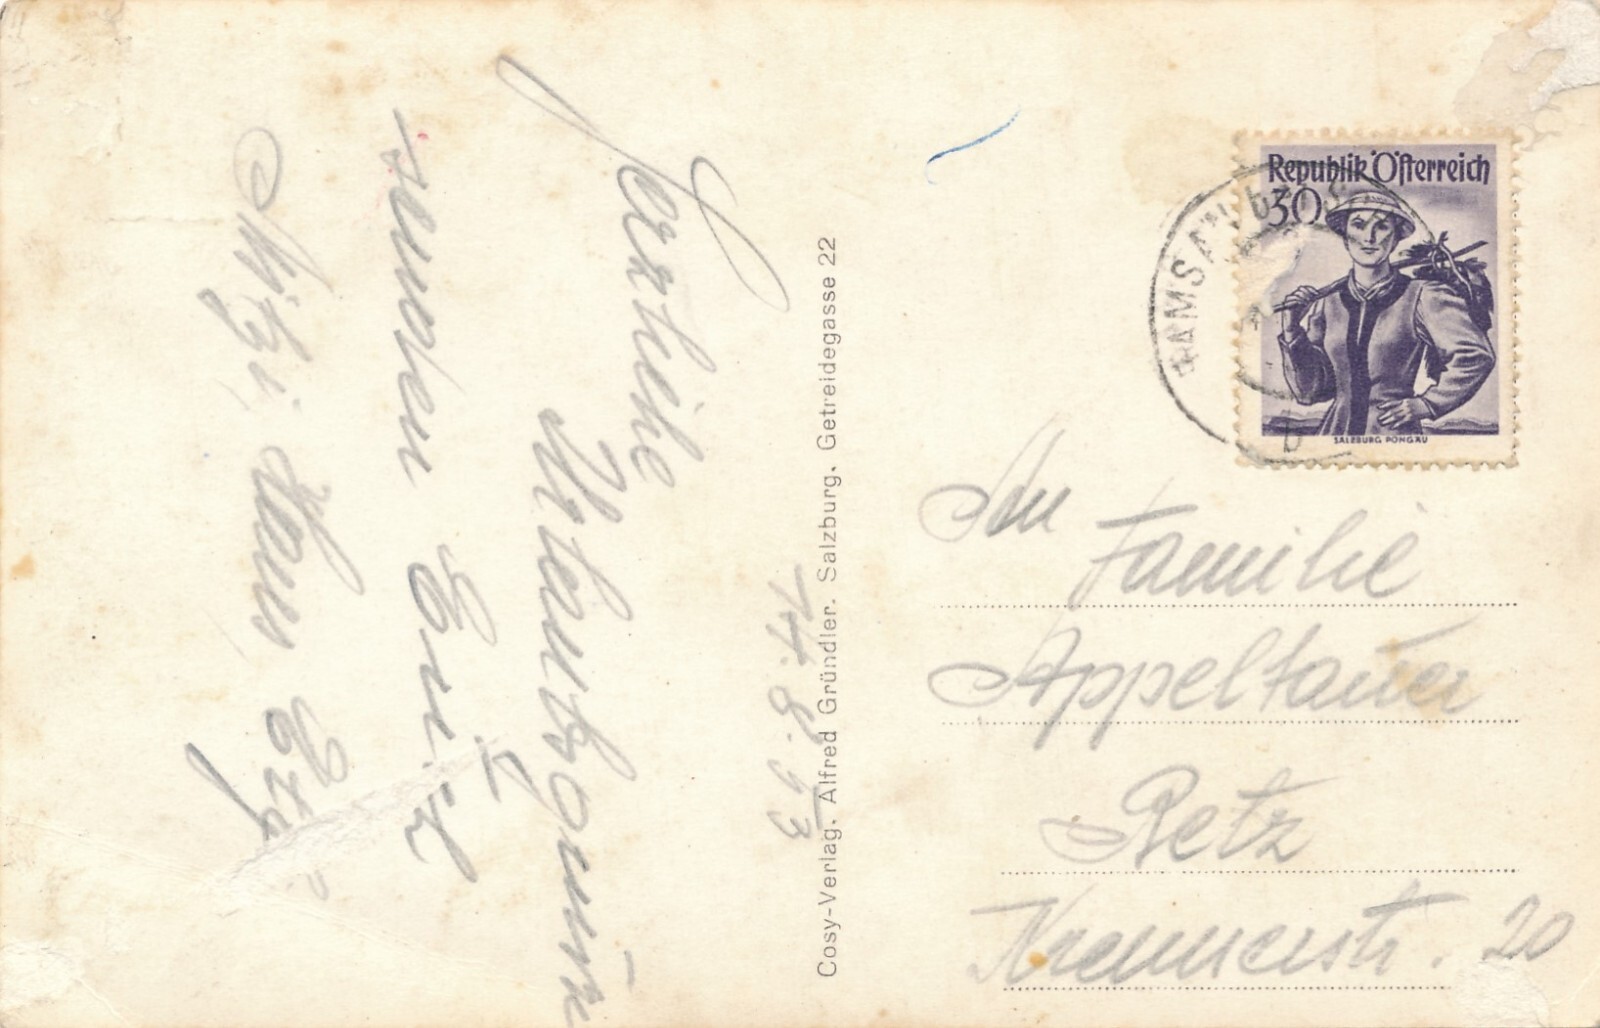 Herzliche
Urlaubsgrüße
senden Euch
Mitzi Hans
14.8.53
Cosy-Verlag. Alfred Gründler. Salzburg. Getreidegasse 22
Republik Österreich
30
SALZBURG PONGAU
RAMSAU
b
An
Familie
Appeltauer
Retz
Kremserstr. 20